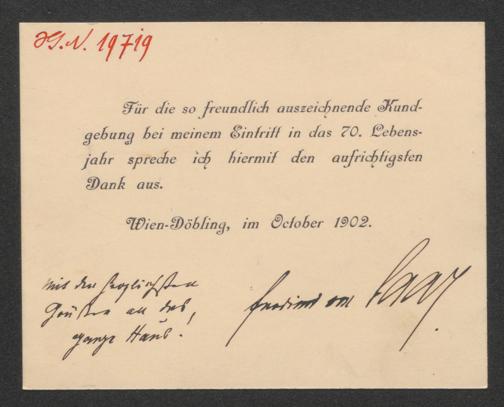 I.N. 19719
Für die so freundlich auszeichnende Kund-
gebung bei meinem Eintritt in das 70. Lebens-
jahr spreche ich hiermit den aufrichtigsten
Dank aus.
Wien-Döbling, im October 1902.
Mit den herzlichsten
Grüßen an das
ganze Haus!
Ferdinand von Saar